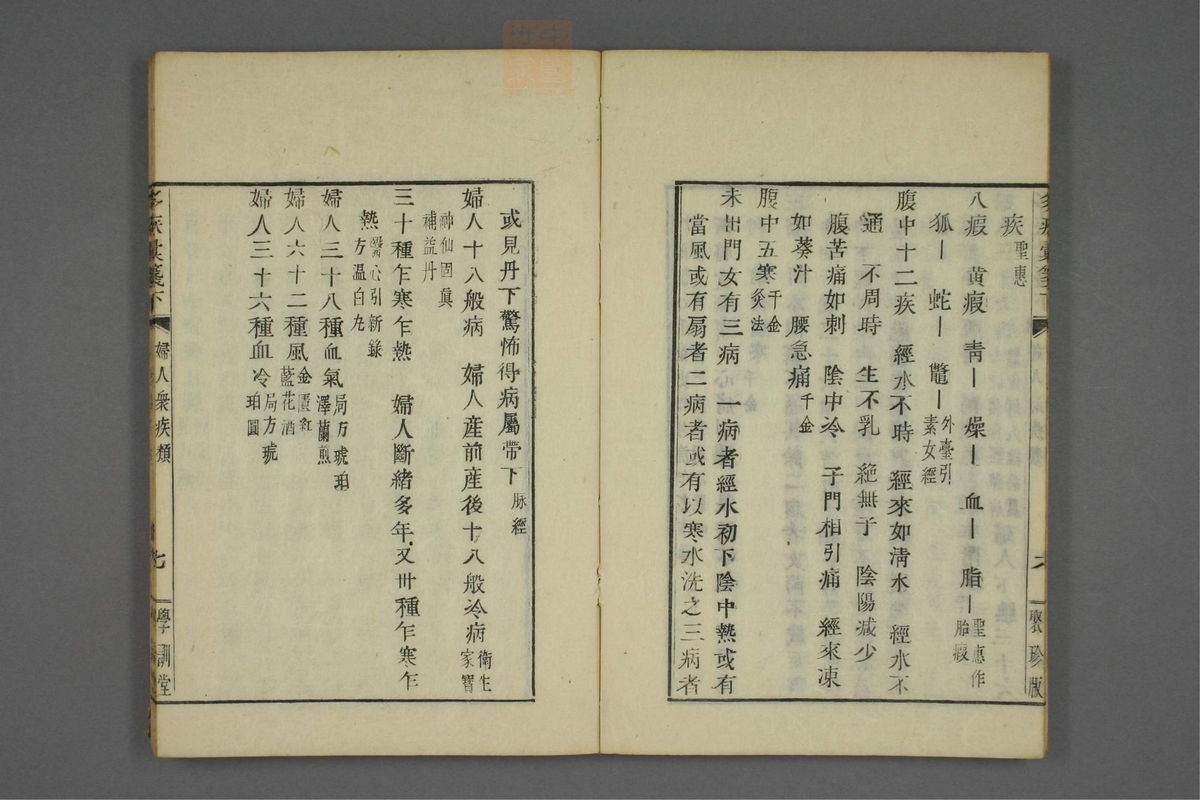 疾聖惠
八瘕　黄瘕　青｜　燥｜　血｜　脂｜聖惠作胎瘕
狐｜　蛇｜　鼈｜外臺引素女經
腹中十二疾　經水不時　經來如清水　經水不
通　不周時　生不乳　絶無子　陰陽减少
腹苦痛如刺　陰中冷　子門相引痛　經來凍
如葵汁　腰急痛千金
腹中五寒千金灸法
未出門女有三病　一病者經水初下陰中熱或有
當風或有扇者二病者或有以寒水洗之三病者
聚珍版
或見丹下驚怖得病屬帶下脉經
婦人十八般病　婦人産前産後十八般冷病衛生家寶
神仙固眞補益丹
三十種乍寒乍熱　婦人斷緒多年又卅種乍寒乍
熱醫心引新錄方温白丸
婦人三十八種血氣局方琥珀澤蘭煎
婦人六十二種風金匱紅藍花酒
婦人三十六種血冷局方琥珀圓
婦人衆疾類
七
學訓堂